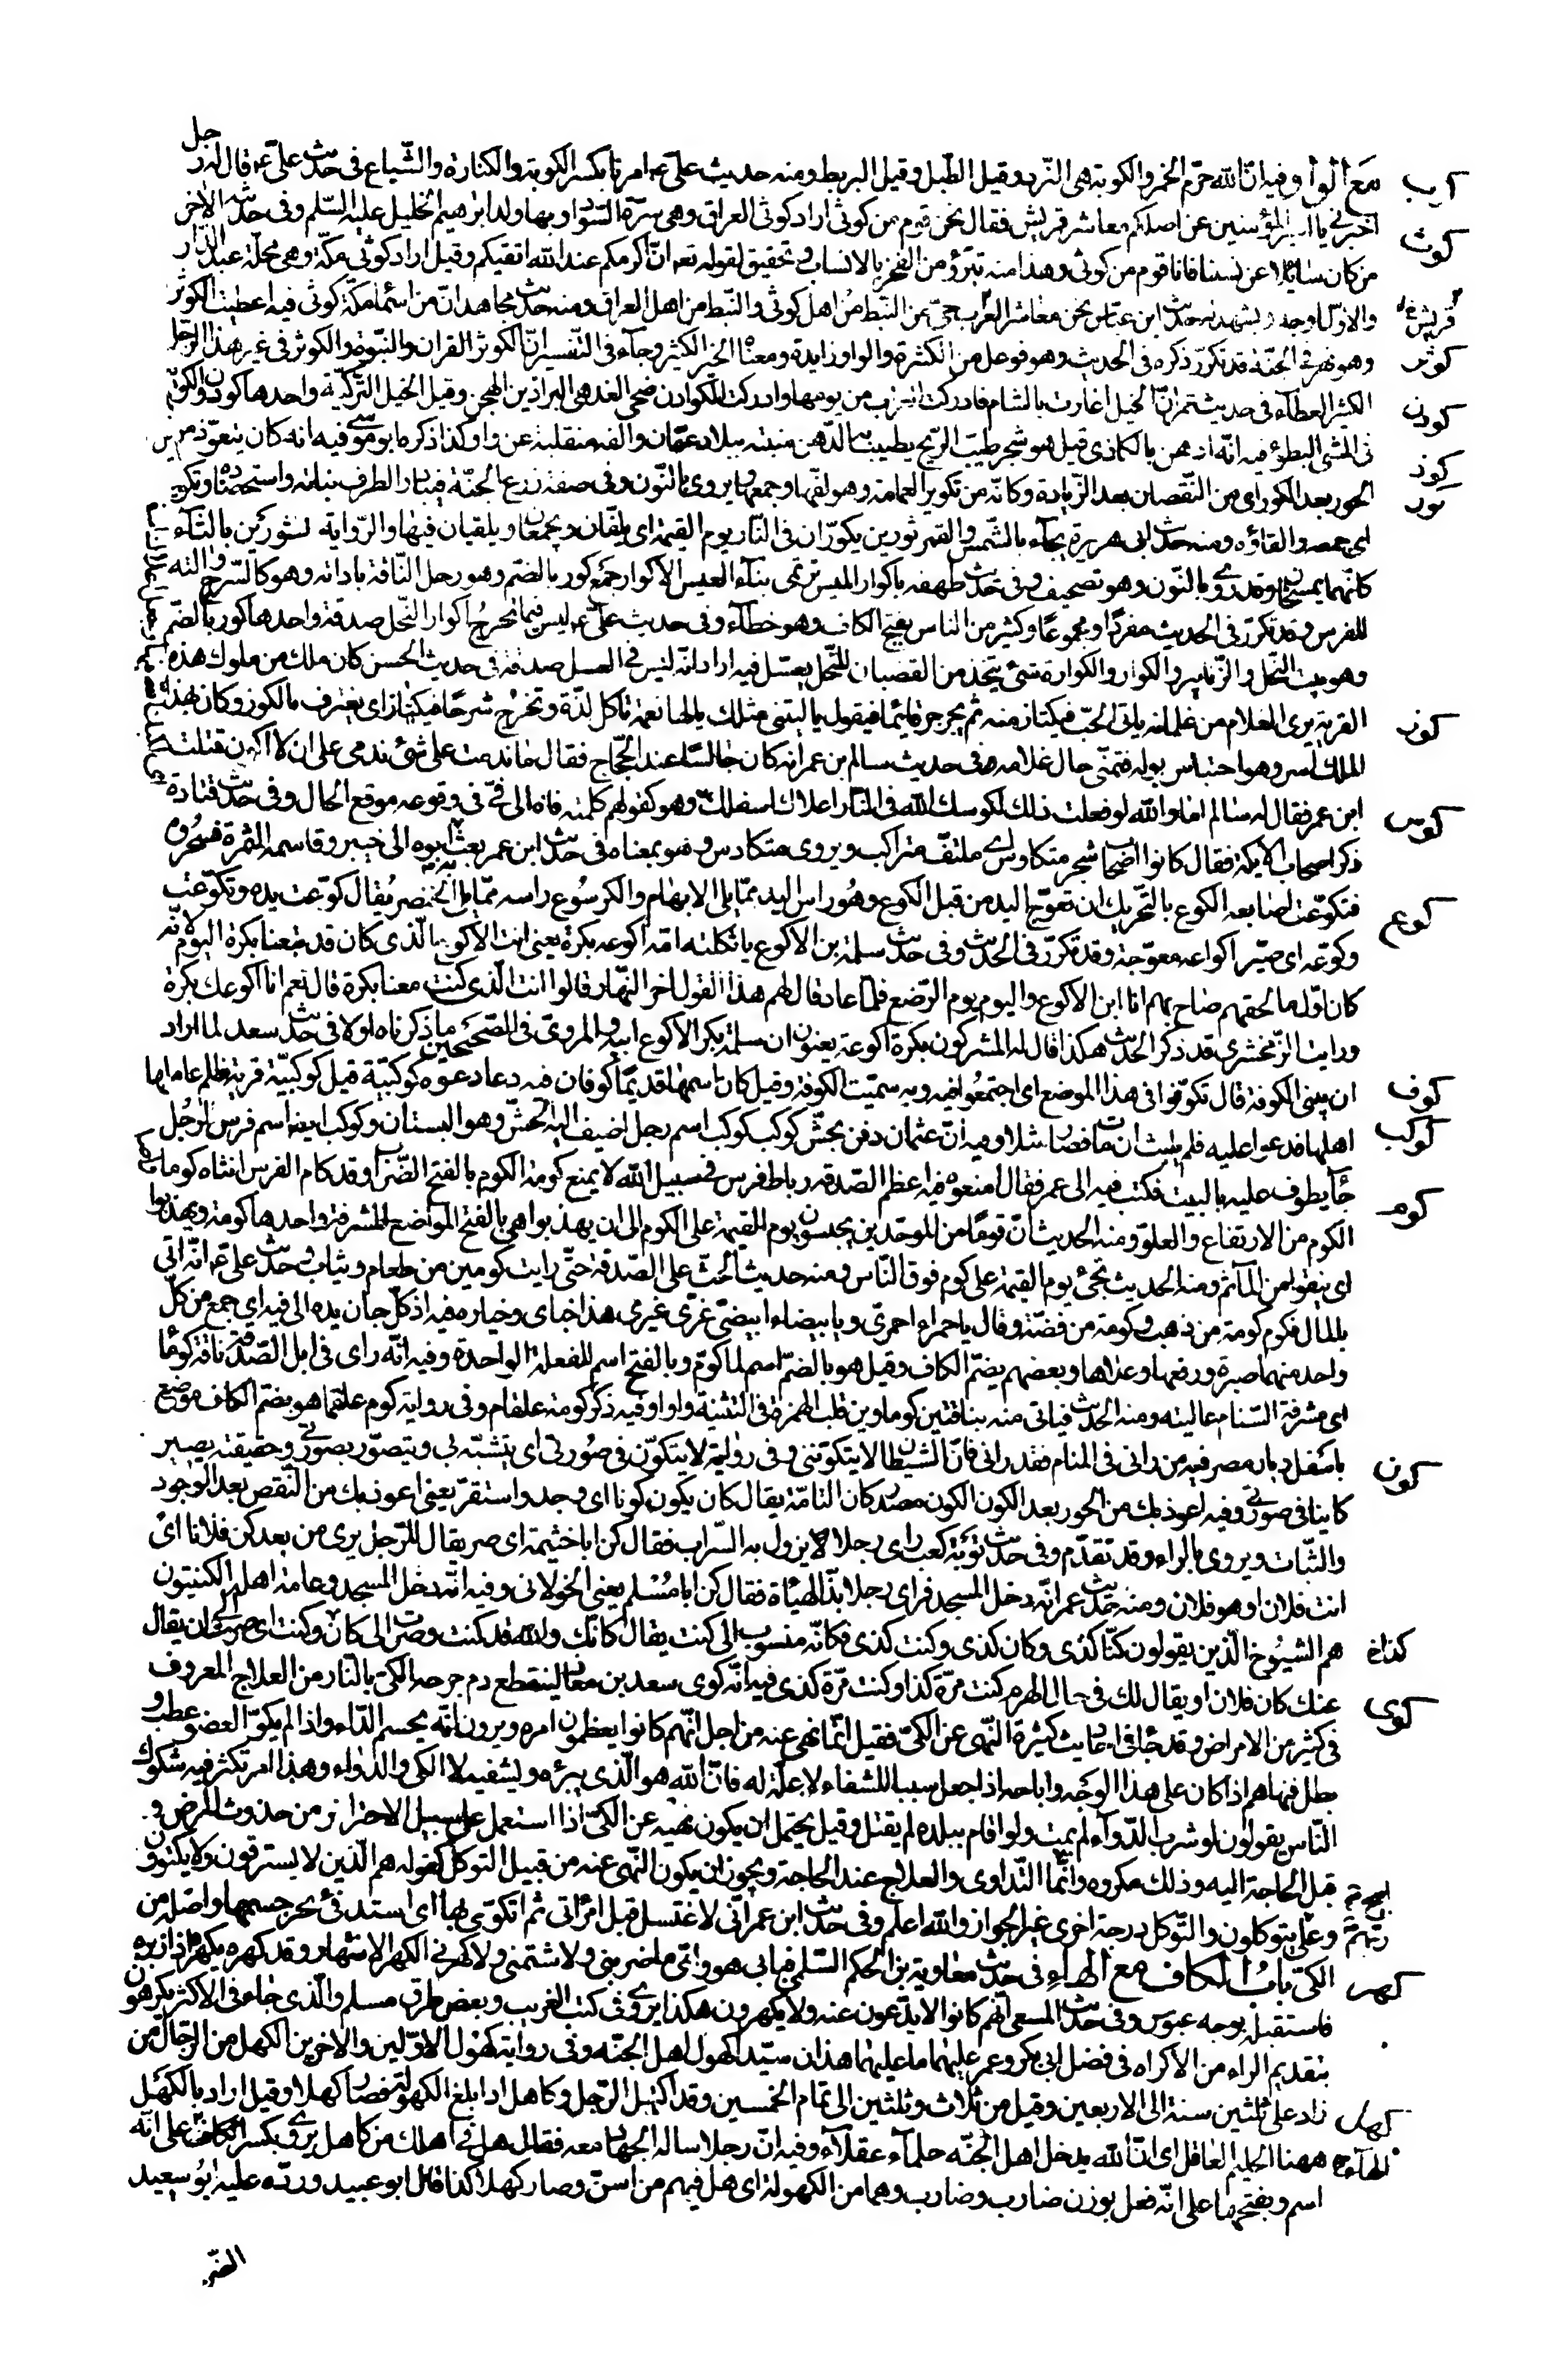 جل
كوب مع الواو فيه انّ الله حرّم الخمر والكوبة هى النّرد وقيل الطّبل وقيل البربط ومنه حديث علىّ ع م امرنا بكسر الكوبة والكنارة والشّياع فى حديث علىّ ع م قال له ر
كوث اخبرنى يا امير المؤمنين عن اصلكم معاشر قريش فقال نحن قوم من كوثى اراد كوثى العراق وهى سرّة السّواد وبها ولد ابرهيم الخليل عليه السّلم وفى حديثه الآخر
من كان سائلا عن نسبنا فانا قوم من كوثى وهذا منه تبرّؤ من الفخر بالانساب وتحقيق لقوله تعه انّ اكرمكم عند الله اتقيكم وقيل اراد كوثى مكّة وهى محلّة عبد الدّار
والاوّل اوجه ويشهد له حديث ابن عبّاس نحن معاشر العرب حىّ من النبط من اهل كوثى والنبط من اهل العراق ومنه حديث مجاهد انّ من اسماء مكّة كوثى فيه اعطيت الكوثر
كوثر وهو نهر فى الجنّة قد تكرّر ذكره فى الحديث وهو فوعل من الكثرة والواو زايدة ومعناه الخير الكثير وجآء فى التّفسير انّ الكوثر القران والنّبوّة والكوثر فى غير هذا الرّجل
كودن الكثير العطآء فى حديث عمر انّ الخيل اغارت بالشام فادركت العراب من يومها وادركت الكوادن ضحى الغد هى البراذين الهجن وقيل الخيل التّركيّة واحدها كودن والكودنة
كوذ فى المشى البطؤ فيه انّه ادهن بالكاذى قيل هو شجر طيّب الرّيح يطيب به الدّهن منبته ببلاد عمّان والفه منقلبة عن واو كذا ذكره ابو موسى فيه انه كان يتعوّذ من
كور الحور بعد الكور اى من النّقصان بعد الزّيادة وكانّه من تكوير العمامة وهو لفّها وجمعها ويروى بالنّون وفى صفة زرع الجنّة فيبادر الطرف نباته واستحصاده وتكويره
اى جمعه والقاؤه ومنه حديث ابى هريرة يجآء بالشّمس والقمر ثورين يكوّران فى النّار يوم القيمة اى يلفّان ويجمعان ويلقيان فيها والرّواية ثورين بالثآء
كانّهما يمسخان وقد روى بالنّون وهو تصحيف وفى حديث طهفه باكوار الميس ترتمى بنآء العيس الاكوار جمع كور بالضّم وهو رحل النّاقة باداته وهو كالسّرج والته
للفرس وقد تكرّر فى الحديث مفردًا ومجموعًا وكثير من الناس يفتح الكاف وهو خطآء وفى حديث علىّ ع م ليس فيما تخرج اكوار النّحل صدقة واحدها كور بالضّم
وهو بيت النّحل والزّنابير والكوار والكوارة شئ يتخذ من القضبان للنّحل يعسّل فيه اراد انّه ليس فى العسل صدقة فى حديث الحسن كان ملك من ملوك هذه
كوز القرية يرى الغلام من غلمانه ياتى الحبّ فيكتاز منه ثم يجرجر قايما فيقول يا ليتنى مثلك يا لها نعمة تاكل لذّة وتخرج سُرحًا فيكتاز اى يغترف بالكوز وكان بهذا
الملك اسر وهو احتباس بوله فتمنّى حال غلامه فى حديث سالم بن عمر انه كان جالسًا عند الحجّاج فقال ما ندمت على شئ ندمى على ان لا اكون قتلت
كوس ابن عمر فقال له سالم اما والله لو فعلت ذلك لكوسك الله فى النّار اعلاك اسفلك وهو كقولهم كلمته فاه الى فىّ فى وقوعه موقع الحال وفى حديث قتادة
ذكر اصحاب الايكة فقال كانوا اصحاب شجر متكاوس اى ملتفّ متراكب ويروى متكادس وهو بمعناه فى حديث ابن عمر بعث به ابوه الى خيبر وقاسمه الثمرة فسحروه
كوع فتكوّعت اصابعه الكوع بالتّحريك ان تعوّج اليد من قبل الكوع وهُو راس اليد ممّا يلى الابهام والكرسُوع راسه ممّا يلى الخنصر يُقال كوّعت يده وتكوّعت
وكوّعه اى صيّر اكواعه معوّجة وقد تكرّر فى الحديث وفى حديث سلمة بن الاكوع يا ثكلته امّه اكوعه بكرة يعنى انت الاكوع الّذى كان قد تبعنا بكرة اليوم لانّه
كان اوّل ما لحقهم صاح بهم انا ابن الاكوع واليوم يوم الرّضع فلمّا عاد قال لهم هذا القول اخر النّهار قالوا انت الّذى كنت معنا بكرة قال نعم انا اكوعك بكرة
ورايت الزّمخشرى قد ذكر الحديث هكذا قال له المشركون بكرة اكوعه يعنون ان سلمة بكر الاكوع ابيه والمروىّ فى الصّحيحين ما ذكرناه اولا فى حديث سعد لما اراد
كوف ان يبنى الكوفة قال تكوّفوا فى هذا الموضع اى اجتمعُوا فيه وبه سميّت الكوفة وقيل كان اسمها قديمًا كوفان فيه دعا دعوة كوكبيّة قيل كوكبيّة قرية ظلم عاملها
كوكب اهلها فدعوا عليه فلم يلبث ان مات فصار مثلا وفيه انّ عثمان دفن بحشّ كوكب كوكب اسم رجل اضيف اليه الحشّ وهو البستان وكوكب ايضا اسم فرس لرجُل
جآء يطوف عليه بالبيت فكتب فيه الى عمر فقال امنعوه فيه اعظم الصّدقة رباط فرس فى سبيل الله لا يمنع كومه الكوم بالفتح الضّراب وقد كام الفرس انثاه كوما
كوم الكوم من الارتفاع والعلوّ ومنه الحديث انّ قومًا من الموحّدين يحبسون يوم القيمة على الكوم الى ان يهذبوا هى بالفتح المواضع المشرفة واحدها كومة ويهذبوا
اى ينقوا من المآثم ومنه الحديث نجئ يوم القيمة على كوم فوق النّاس ومنه حديث الحث على الصّدقة حتّى رايت كومين من طعام وثياب وحديث علىّ ع م انّه اتى
بالمال فكوم كومة من ذهب وكومة من فضّة وقال يا حمراء احمرّى ويا بيضاء ابيضّى غرّى غيرى هذا جناى وخياره فيه اذ كلّ جان يده الى فيه اى جمع من كلّ
واحد منهما صبرة ورفعها وعلاها وبعضهم يضمّ الكاف وقيل هو بالضّمّ اسم لما كوّم وبالفتح اسم للفعلة الواحدة وفيه انّه راى فى ابل الصّدقة ناقة كومآء
اى مشرفة السّنام عاليته ومنه الحديث فياتى منه بناقتين كوماوين قلب الهمزة فى التثنية واوا وفيه ذكر كومة علقام وفى رواية كوم علقما هو بضمّ الكاف موضع
كون باسفل ديار مصر فيه من رانى فى المنام فقد رانى فانّ الشيطان لا يتكوّننى وفى رواية لا يتكوّن فى صُورتى اى يتشبّه بى ويتصوّر بصورتى وحقيقته يصير
كاينا فى صورتى وفيه اعوذ بك من الحور بعد الكون الكون مصدر كان التامّة يقال كان يكون كونا اى وجد واستقرّ يعنى اعوذ بك من النّقص بعد الوجود
والثّبات ويروى بالراء وقد تقدّم وفى حديث توبة كعب راى رجلا لا يزول به السّراب فقال كن ابا خثيمة اى صر يقال للرّجل يرى من بعد كن فلانا اى
انت فلان او هو فلان ومنه حديث عمر انّه دخل المسجد فراى رجلا بذّ الهيأة فقال كن ابا مُسْلم يعنى الخولانى وفيه انّه دخل المسجد وعامة اهله الكنتيّون
كذا خ هم الشيُوخ الّذين يقولون كنّا كذى وكان كذى وكنت كذى فكانّه منسوب الى كنت يقال كانّك والله قد كنت وصرت الى كان وكنت اى صرت الى ان يقال
كوى عنك كان فلان او يقال لك فى حال الهرم كنت مرّة كذا وكنت مرّة كذى فيه انّه كوى سعد بن معاذ لينقطع دم جرحه الكىّ بالنّار من العلاج المعروف
فى كثير من الامراض وقد جآء فى احاديث كثيرة النّهى عن الكىّ فقيل انّما نهى عنه من اجل انّهم كانوا يعظمون امره ويرون انّه يحسم الدّاء واذا لم يكوّ العضو عطب و
بطل فنهاهم اذا كان على هذا الوجه واباحه اذا جعل سببا للشفاء لا علّة له فانّ الله هو الّذى يبرئه ويشفيه لا الكى والدّواء وهذا امر تكثر فيه شكوك
النّاس يقولون لو شرب الدّوآء لم يمت ولو اقام ببلده لم يقتل وقيل يحتمل ان يكون نهيه عن الكىّ اذا استعمل على سبيل الاحتراز من حدوث المرض و
قبل الحاجة اليه وذلك مكروه وانّما التّداوى والعلاج عند الحاجة ويجوز ان يكون النّهى عنه من قبيل التوكل كقوله هم الّذين لا يسترقون ولا يكتوون
وعلى ربّهم يتوكلون والتّوكل درجة اخرى غير الجواز والله اعلم وفى حديث ابن عمر انّى لاغتسل قبل امراتى ثم اتكوّى بها اى استدفئ بحر جسمها واصله من
كهر الكىّ بابُ الكاف مع الهاءِ فى حديث معاوية بن الحكم السّلمى فبابى هو وامّى ما ضربنى ولا شتمنى ولا كهرنى الكهر الانتهار وقد كهره يكهره اذا زبره
فاستقبله بوجه عبوس وفى حديث المسعى انّهم كانوا لا يدّعون عنه ولا يكهرون هكذا يروى فى كتب الغريب وبعض طرق مسلم والّذى جاء فى الاكثر يكرهون
بتقديم الراء من الاكراه فى فضل ابى بكر وعمر عليهما ما عليهما هذان سيّدا كهول اهل الجنّه وفى رواية كهول الاوّلين والاخرين الكهل من الرّجال من
كهل زاد على ثلثين سنة الى الاربعين وقيل من ثلاث وثلثين الى تمام الخمسين وقد اكتهل الرّجل وكاهل اذا بلغ الكهولة فصار كهلا وقيل اراد بالكهل
ههنا الحليم العاقل اى انّ الله يدخل اهل الجنّه حلمآء عقلآء وفيه انّ رجلا ساله الجهاد معه فقال هل فى اهلك من كاهل يروى بكسر الهآء على انّه
اسم وبفتحها على انّه فعل بوزن ضارب وضارب وهما من الكهولة اى هل فيهم من اسنّ وصار كهلا كذا قال ابو عبيد وردّه عليه ابُو سعيد
الضّر